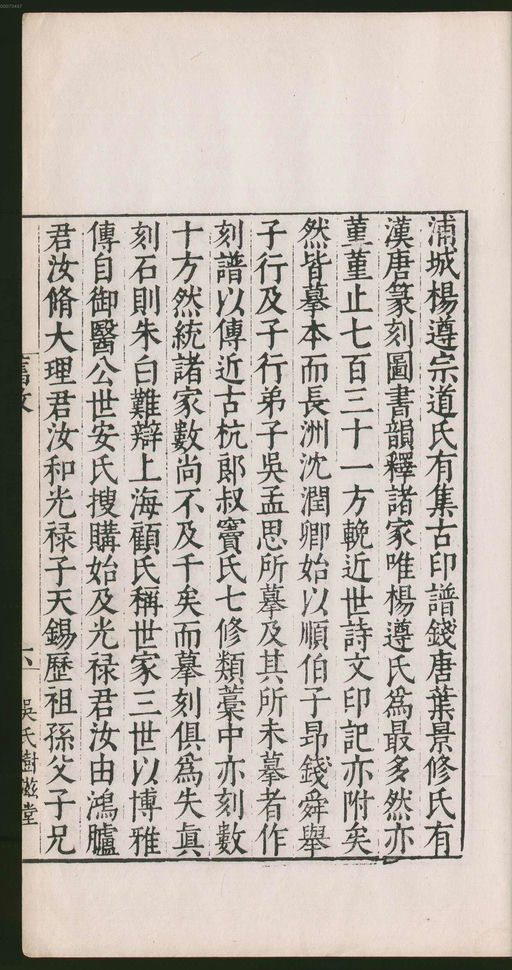 浦城楊遵宗道氏有集古印譜錢唐葉景修氏有
漢唐篆刻圖書韻釋諸家唯楊遵氏爲最多然亦
菫菫止七百三十一方輓近世詩文印記亦附矣
然皆摹本而長洲沈潤卿始以順伯子昻錢舜舉
子行及子行弟子吳孟思所摹及其所未摹者作
刻譜以傳近古杭郞叔寶氏七修類藁中亦刻數
十方然統諸家數尚不及千矣而摹刻俱爲失眞
刻石則朱白難辯上海顧氏稱世家三世以博雅
傳自御醫公世安氏搜購始及光禄君汝由鴻臚
君汝脩大理君汝和光禄子天錫歷祖孫父子兄
六
吳氏樹滋堂
00073487